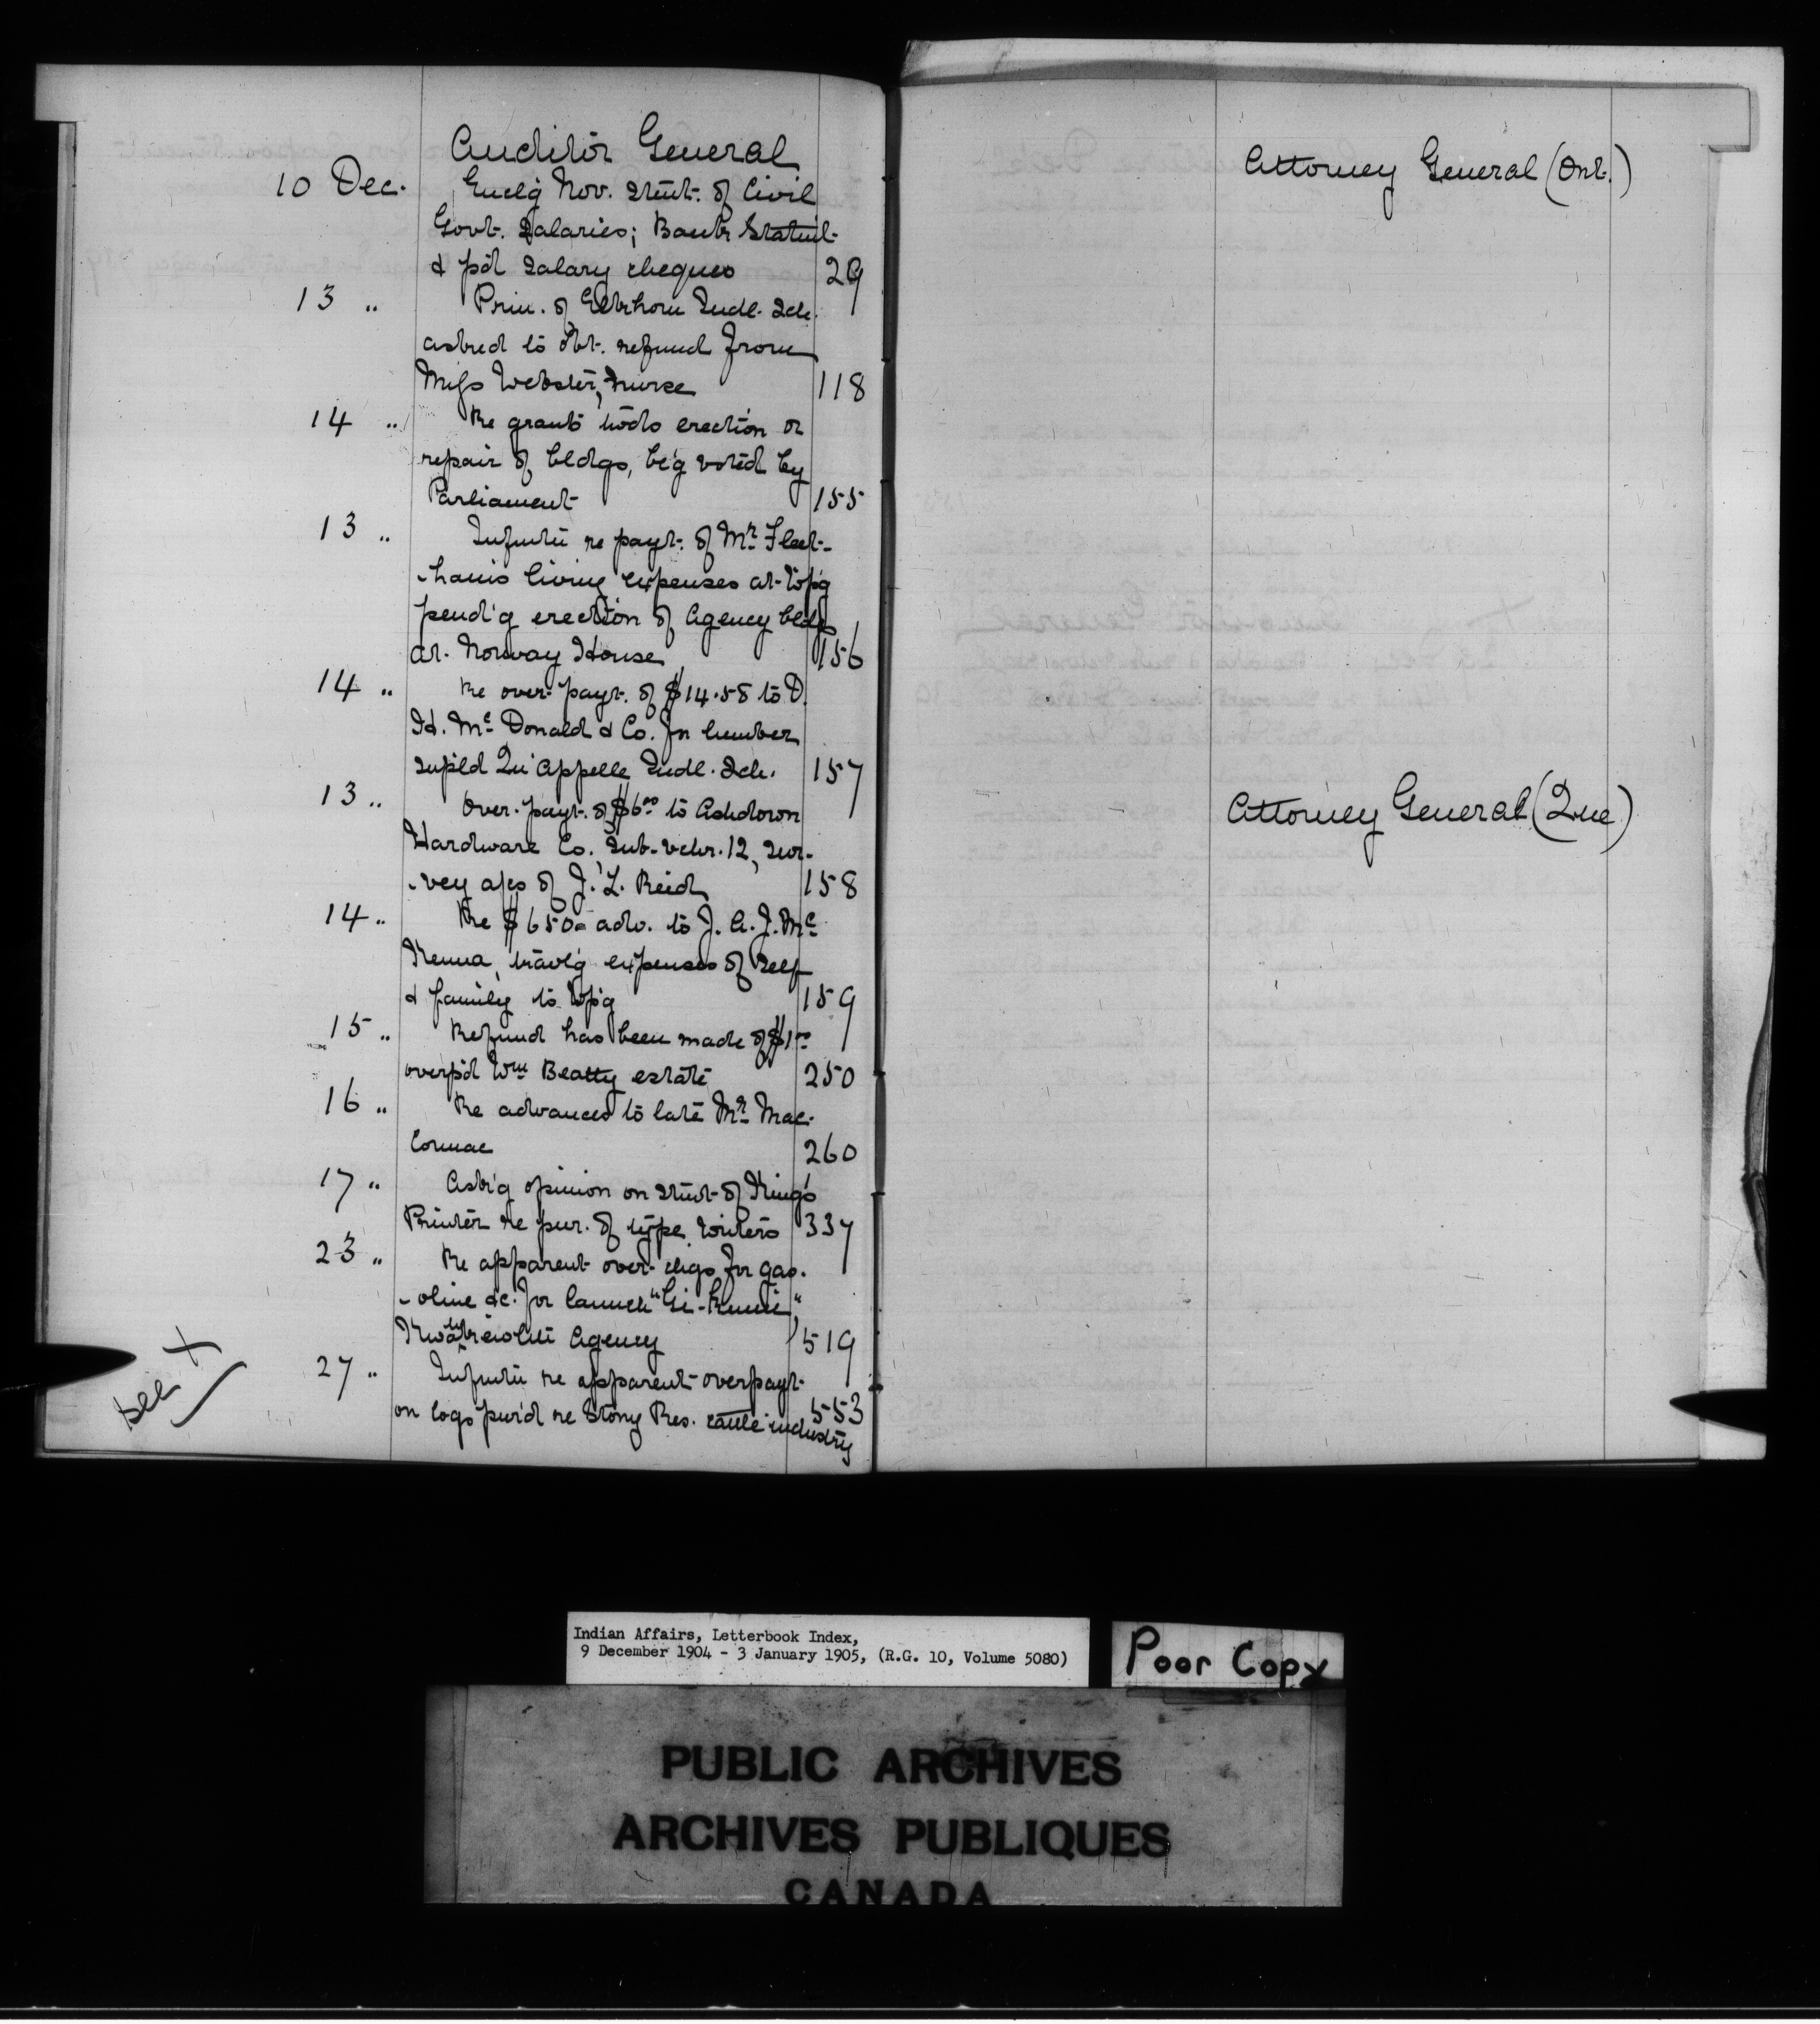 Auditor General
10 Dec. Enclg Nov. Stmt. of Civil
Govt. Salaries; Bank Statmt.
& p'd Salary cheques 29
13 " Prin. of Elkhorn Indl. Sch.
asked to obt. refund from
Miss Webster, nurse 118
14 " Re grants tow'ds erection or
repair of bldgs, be'g voted by
Parliament 155
13 " Infmtn re payt. of Mr. Fleet-
-ham's living expenses at Wp'g
pend'g erection of Agency bldgs
at Norway House 156
14 " Re over-payt. of $14.58 to D.
H. McDonald & Co. for lumber
supl'd Qu'Appelle Indl. Sch. 157
13 " Over-payt. of $6.00 to Ashdown
Hardware Co., Sub-vchr. 12, Sur-
-vey a/cs of J. L. Reid 158
14 " Re $650= adv. to J. A. J. Mc
Kenna, trav'l'g expenses of self
& family to Wp'g 159
15 " Refund has been made of $1.00
overp'd Wm Beatty estate 250
16 " Re advances to late Mr. Mac-
Cormac 260
17 " Ask'g opinion on Stmt. of King's
Printer re pur. of type writers 337
23 " Re apparent over-chgs for gas-
-oline &c. for launch "Gi-Kumi",
Agency 519
27 " Infmtn re apparent overpayt.
on logs pur'd re Stony Res. cattle industry 553
see X
Attorney General (Ont.)
Attorney General (Que)
Indian Affairs, Letterbook Index,
9 December 1904 - 3 January 1905, (R.G. 10, Volume 5080)
Poor Copy
PUBLIC ARCHIVES
ARCHIVES PUBLIQUES
CANADA